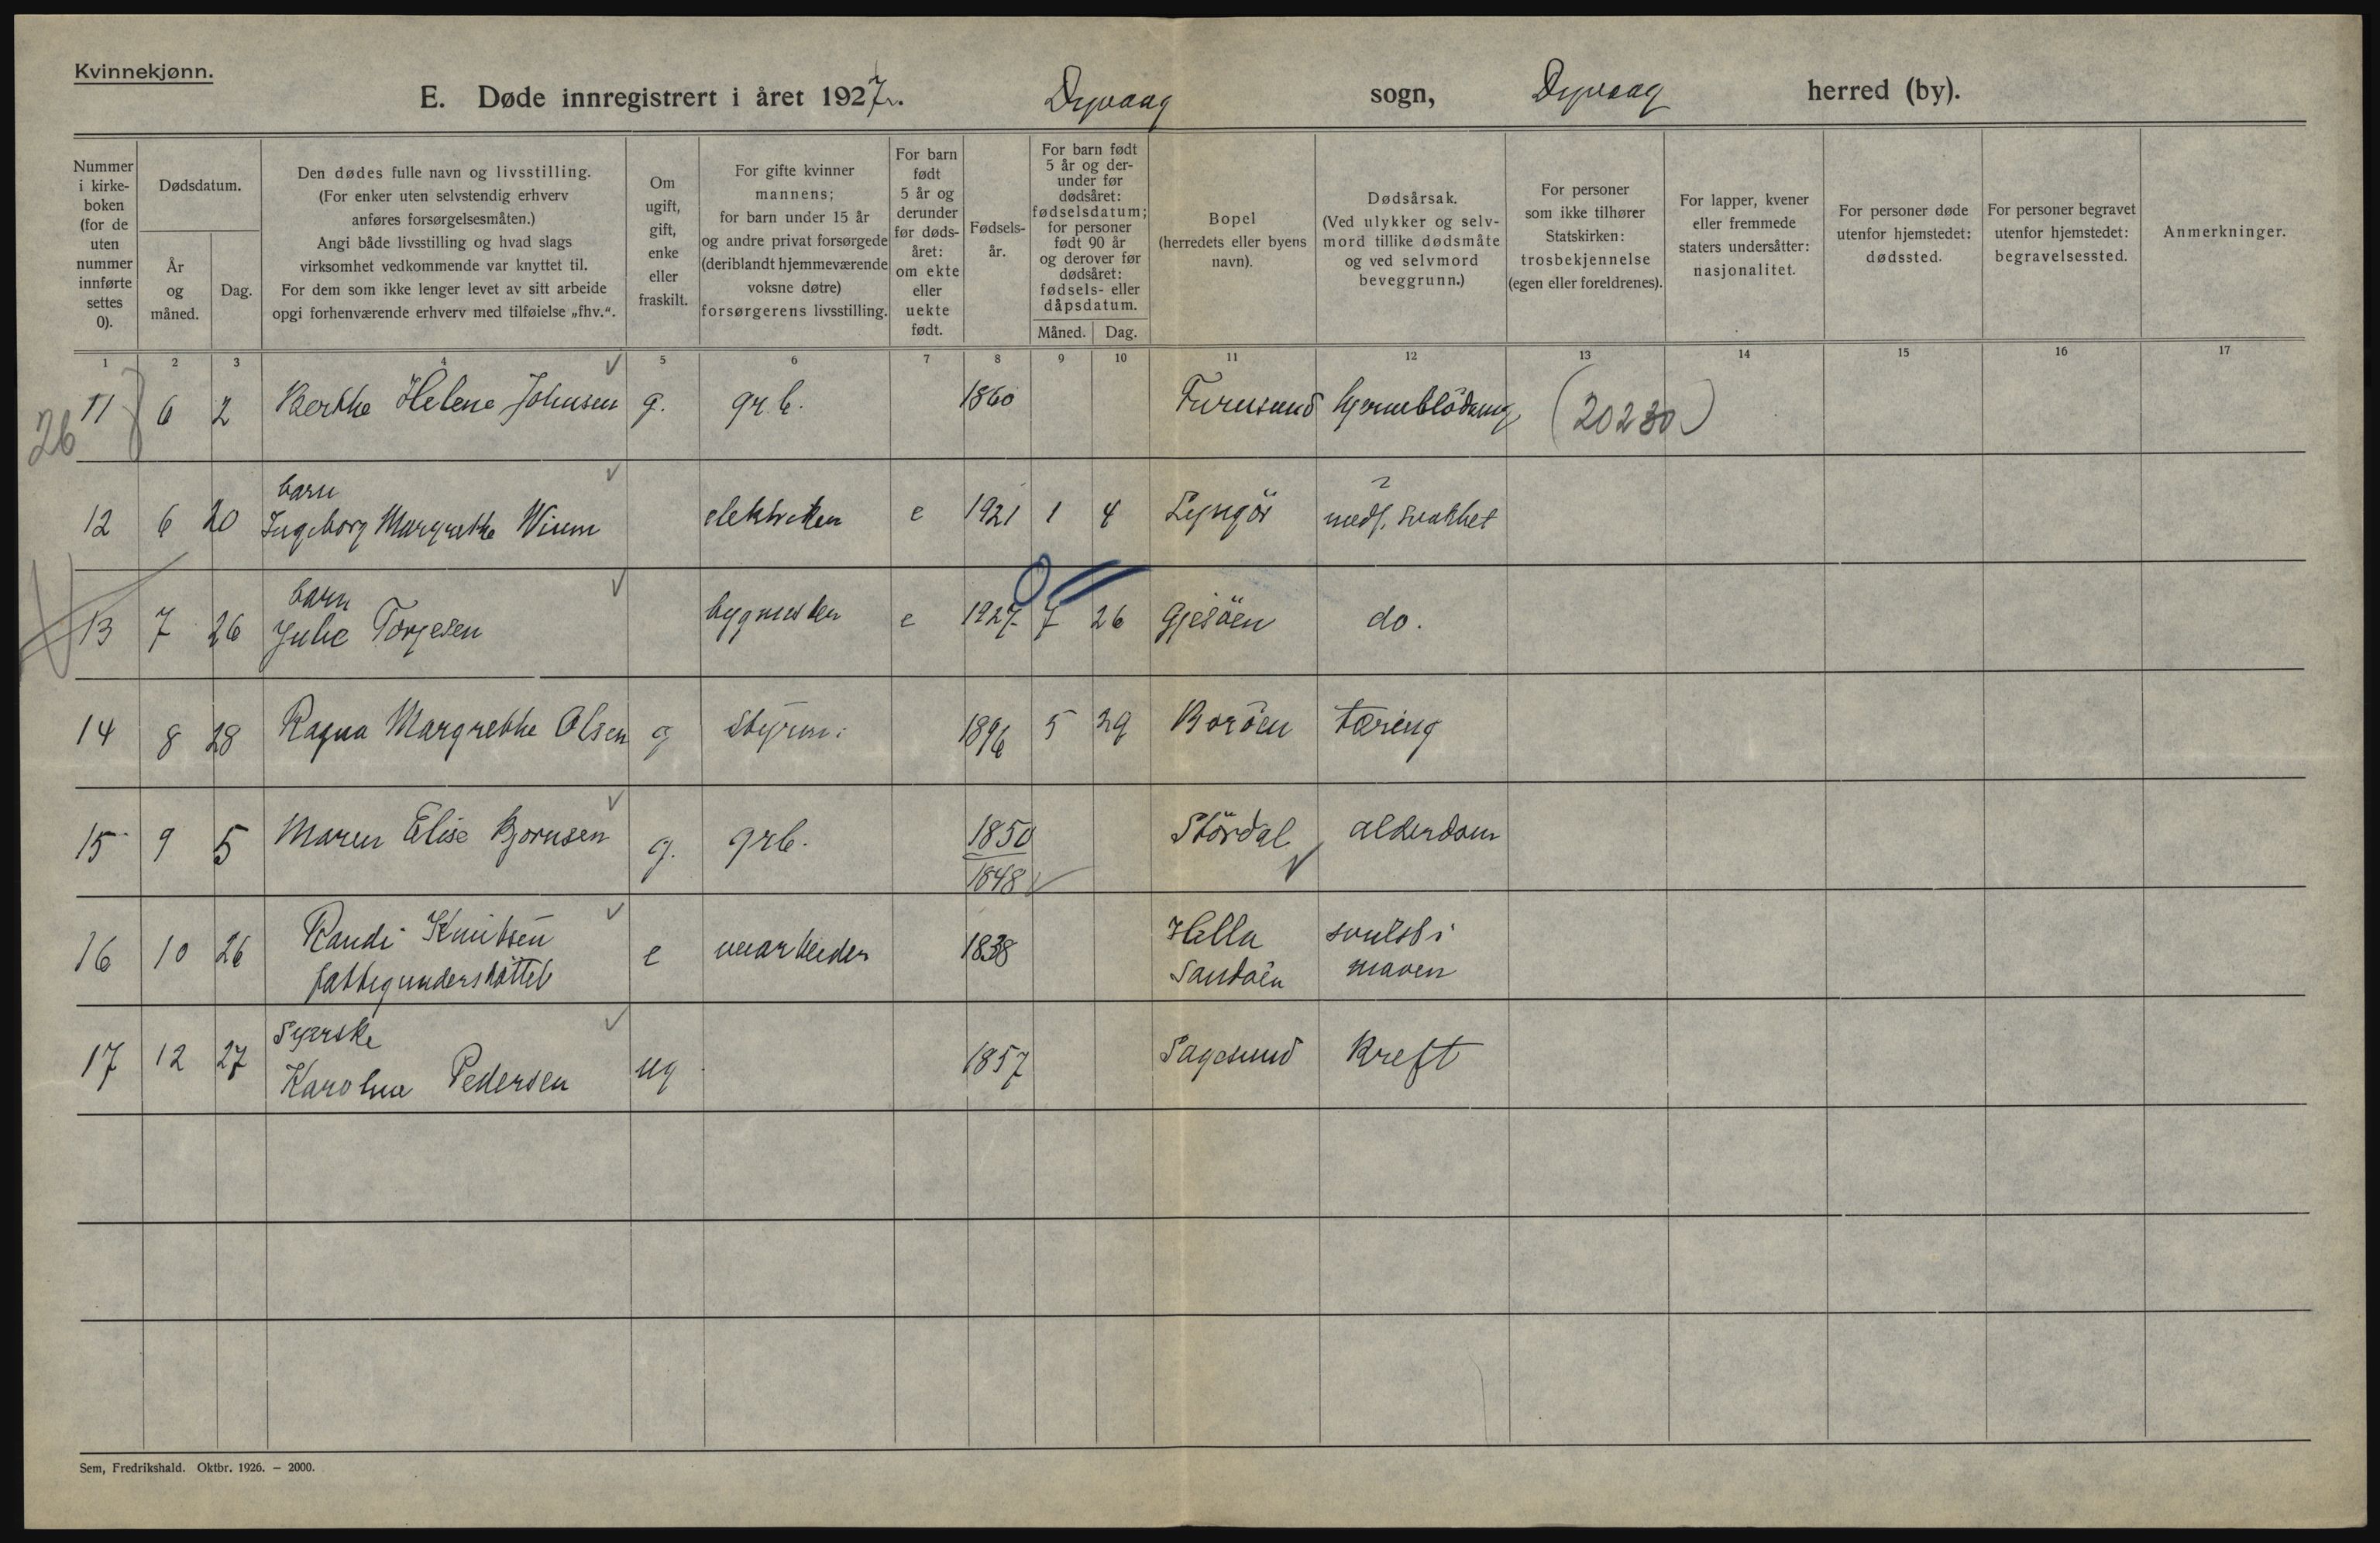 Kvinnekjønn.
E. Døde innregistrert i året 1927. Dyvaag sogn, Dyvaag herred (by).
Nummer i kirke-boken (for de uten nummer innførte settes 0).
Dødsdatum.
År og måned.
Dag.
Den dødes fulle navn og livsstilling.
(For enker uten selvstendig erhverv
anføres forsørgelsesmåten.)
Angi både livsstilling og hvad slags
virksomhet vedkommende var knyttet til.
For dem som ikke lenger levet av sitt arbeide
opgi forhenværende erhverv med tilføielse „fhv.“.
Om ugift, gift, enke eller fraskilt.
For gifte kvinner
mannens;
for barn under 15 år
og andre privat forsørgede
(deriblandt hjemmeværende
voksne døtre)
forsørgerens livsstilling.
For barn født 5 år og derunder før døds-året: om ekte eller uekte født.
Fødsels-år.
For barn født 5 år og der-under før dødsåret: fødselsdatum; for personer født 90 år og derover før dødsåret: fødsels- eller dåpsdatum.
Måned. Dag.
Bopel
(herredets eller byens
navn).
Dødsårsak.
(Ved ulykker og selv-
mord tillike dødsmåte
og ved selvmord
beveggrunn.)
For personer
som ikke tilhører
Statskirken:
trosbekjennelse
(egen eller foreldrenes).
For lapper, kvener
eller fremmede
staters undersåtter:
nasjonalitet.
For personer døde
utenfor hjemstedet:
dødssted.
For personer begravet
utenfor hjemstedet:
begravelsessted.
Anmerkninger.
1 2 3 4 5 6 7 8 9 10 11 12 13 14 15 16 17
11 6 2 Berthe Helene Johnsen g. grb. 1860 Furusund hjerneblödning (20230)
26
barn
12 6 20 Ingeborg Margrethe Wium elektriker e 1921 1 4 Lyngör medf. svakhet
barn
13 7 26 Julie Torjesen bygmester e 1927 7 26 Gjesöen do.
14 8 28 Ragna Margrethe Olsen g styrm. 1896 5 29 Boröen tæring
15 9 5 Maren Elise Bjornsen g. grb. 1850 Stördal alderdom
1848
16 10 26 Randi Knutsen e 1838 Hella svulst i
fattigunderstöttet Sandöen maven
Syerske
17 12 27 Karoline Pedersen ug 1857 Sagesund Kreft
Sem, Fredrikshald. Oktbr. 1926. – 2000.